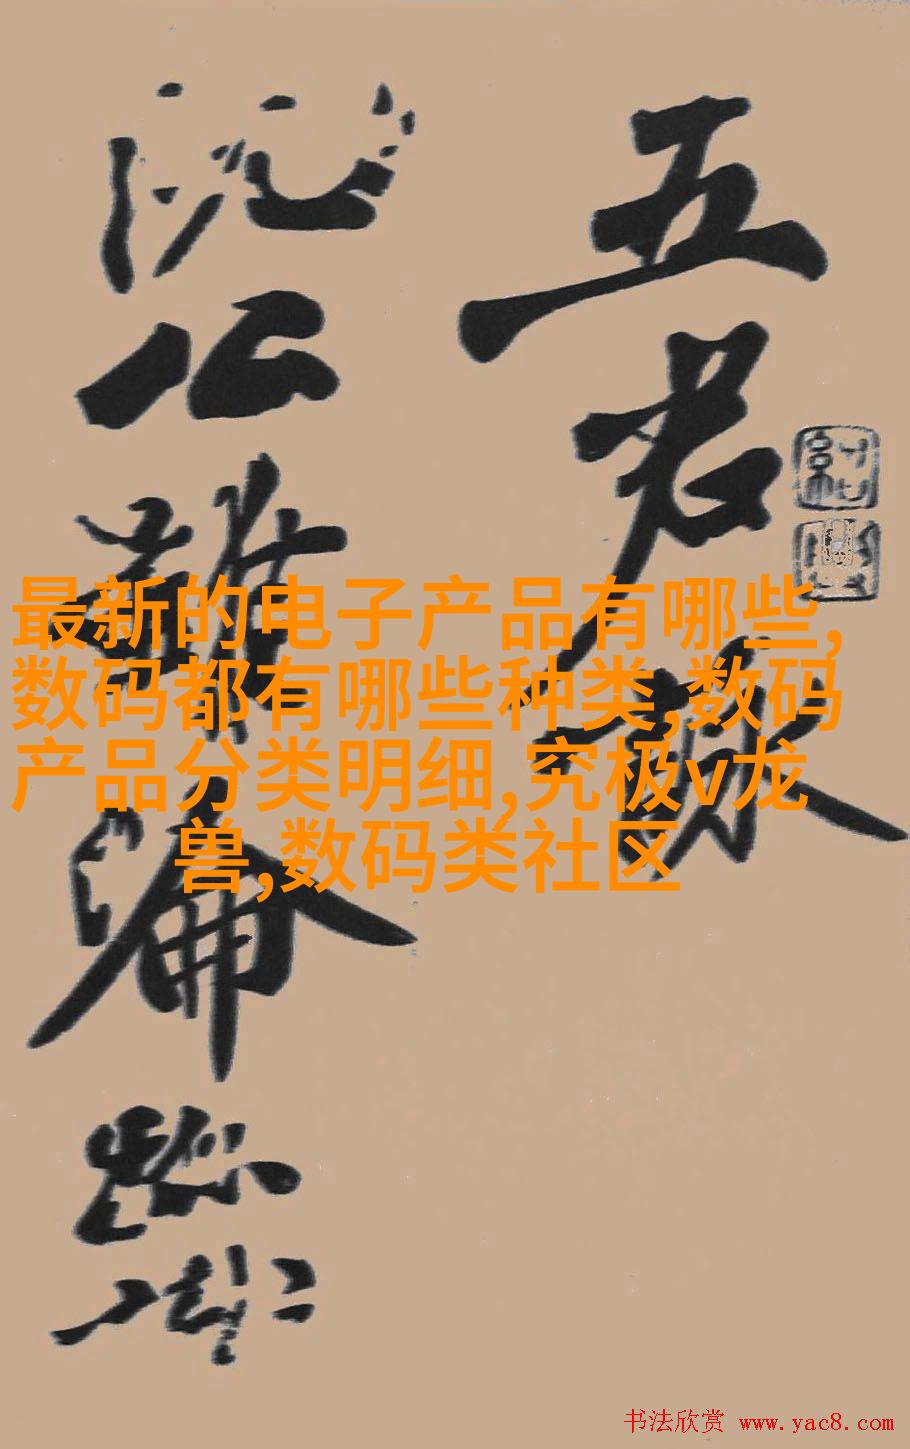 五君詠
阮公雖淪跡
最新的电子产品有哪些,
数码都有哪些种类,数码
产品分类明细,究极v龙
兽,数码类社区
书法欣赏 www.yac8.com